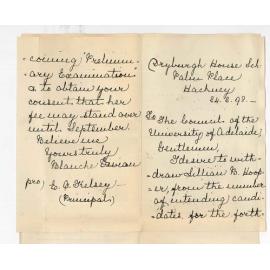 Dryburgh House Sch.
Palm Place
Hackney
24.2.98.—
To The Council of the
University of Adelaide
Gentlemen,
I desire to with-
draw Lillian B. Hoop-
er, from the number
of intending candi-
dates for the forth-
-coming "Prelimin-
ary Examination"
& to obtain your
consent that her
fee may stand over
until September.
Believe me
Yours truly
Blanche
pro) E. A. Kelsey—
(Principals)